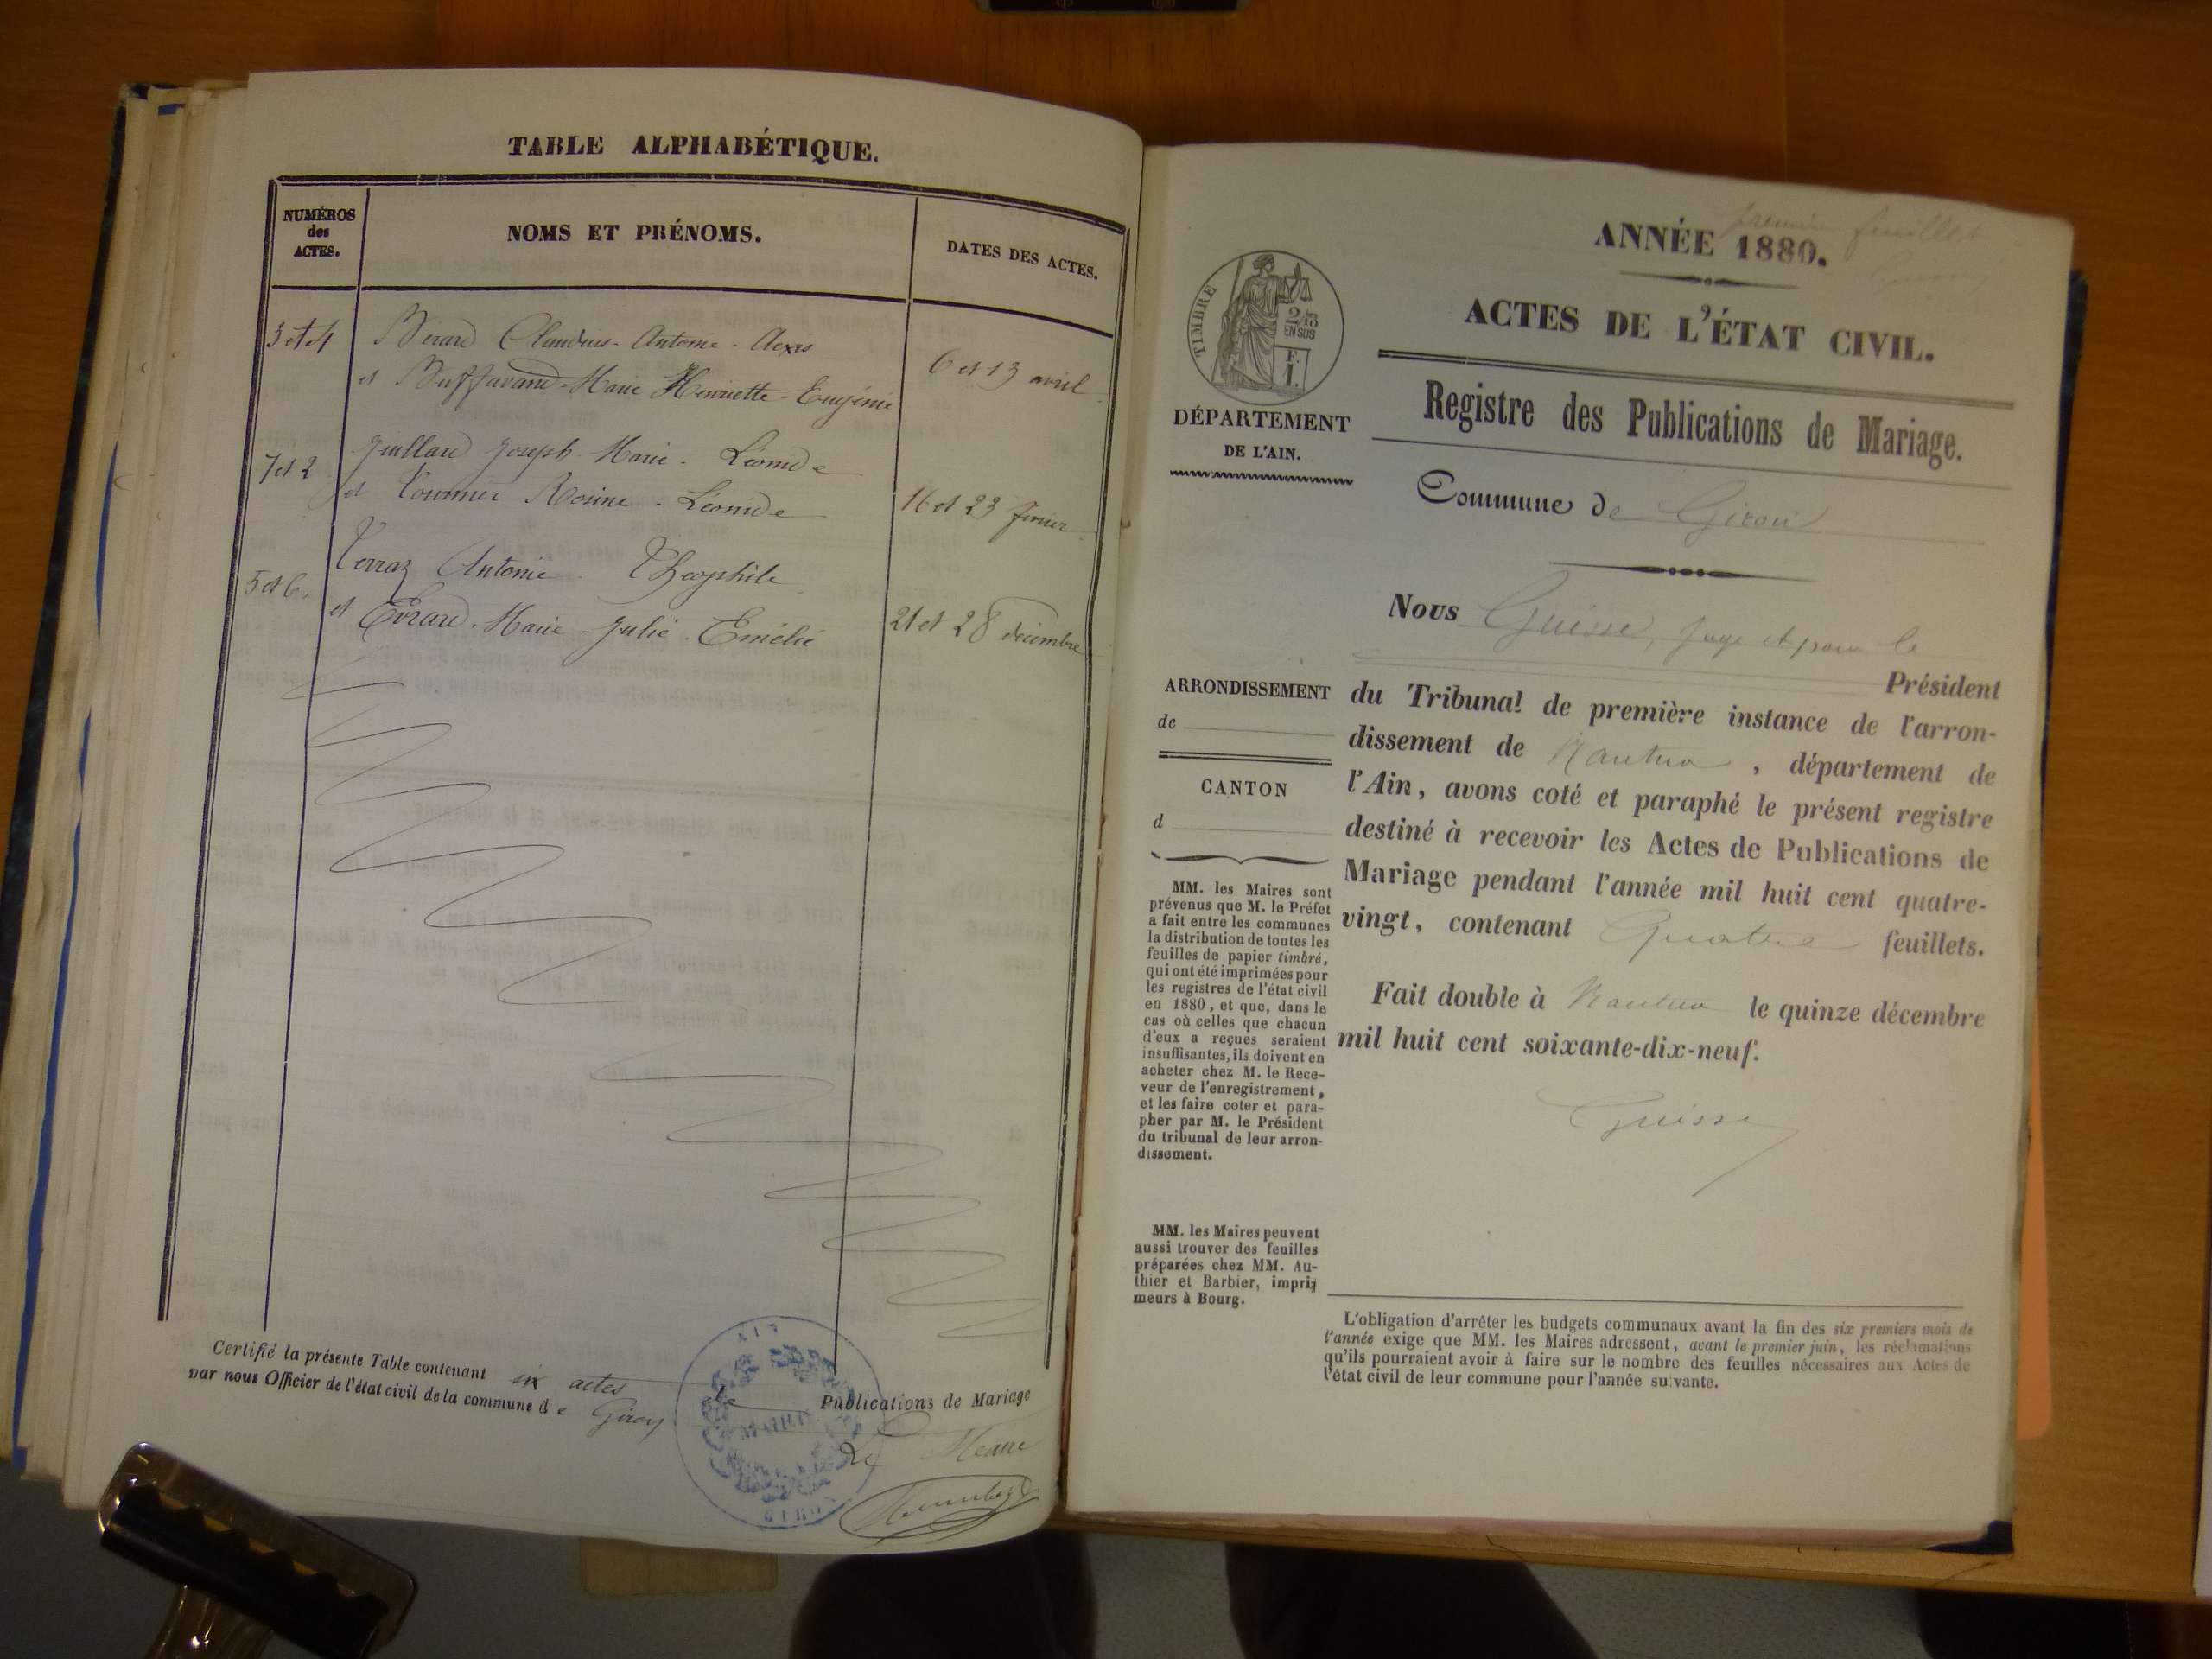 TABLE ALPHABÉTIQUE.
NUMÉROS
des
ACTES.
NOMS ET PRÉNOMS.
DATES DES ACTES.
3 et 4
Bérard Claudius-Antoine-Alexis
et Buffavand-Marie Henriette-Eugénie
6 et 13 avril
1 et 2
Juillard Joseph-Marie-Léonide
et Tournier Rosine-Léonide
16 et 23 février
5 et 6.
Verraz Antoine Théophile
et Evrard-Marie-Julie-Emélie
21 et 28 décembre
Certifié la présente Table contenant six actes de Publications de Mariage
par nous Officier de l'état civil de la commune de Giron
Le Maire
AIN
MAIRIE
GIRON
premier feuillet
ANNÉE 1880.
ACTES DE L'ÉTAT CIVIL.
TIMBRE
2/10
EN SUS
F.
1.
DÉPARTEMENT
DE L'AIN.
Registre des Publications de Mariage.
Commune de Giron
Nous Guisse, juge et pour le
Président
du Tribunal de première instance de l'arron-
dissement de Nantua, département de
l'Ain, avons coté et paraphé le présent registre
destiné à recevoir les Actes de Publications de
Mariage pendant l'année mil huit cent quatre-
vingt, contenant Quatre feuillets.
Fait double à Nantua le quinze décembre
mil huit cent soixante-dix-neuf.
Guisse
ARRONDISSEMENT
de
CANTON
d
MM. les Maires sont
prévenus que M. le Préfet
a fait entre les communes
la distribution de toutes les
feuilles de papier timbré,
qui ont été imprimées pour
les registres de l'état civil
en 1880, et que, dans le
cas où celles que chacun
d'eux a reçues seraient
insuffisantes, ils doivent en
acheter chez M. le Rece-
veur de l'enregistrement,
et les faire coter et para-
pher par M. le Président
du tribunal de leur arron-
dissement.
MM. les Maires peuvent
aussi trouver des feuilles
préparées chez MM. Au-
thier et Barbier, impri-
meurs à Bourg.
L'obligation d'arrêter les budgets communaux avant la fin des six premiers mois de
l'année exige que MM. les Maires adressent, avant le premier juin, les réclamations
qu'ils pourraient avoir à faire sur le nombre des feuilles nécessaires aux Actes de
l'état civil de leur commune pour l'année suivante.